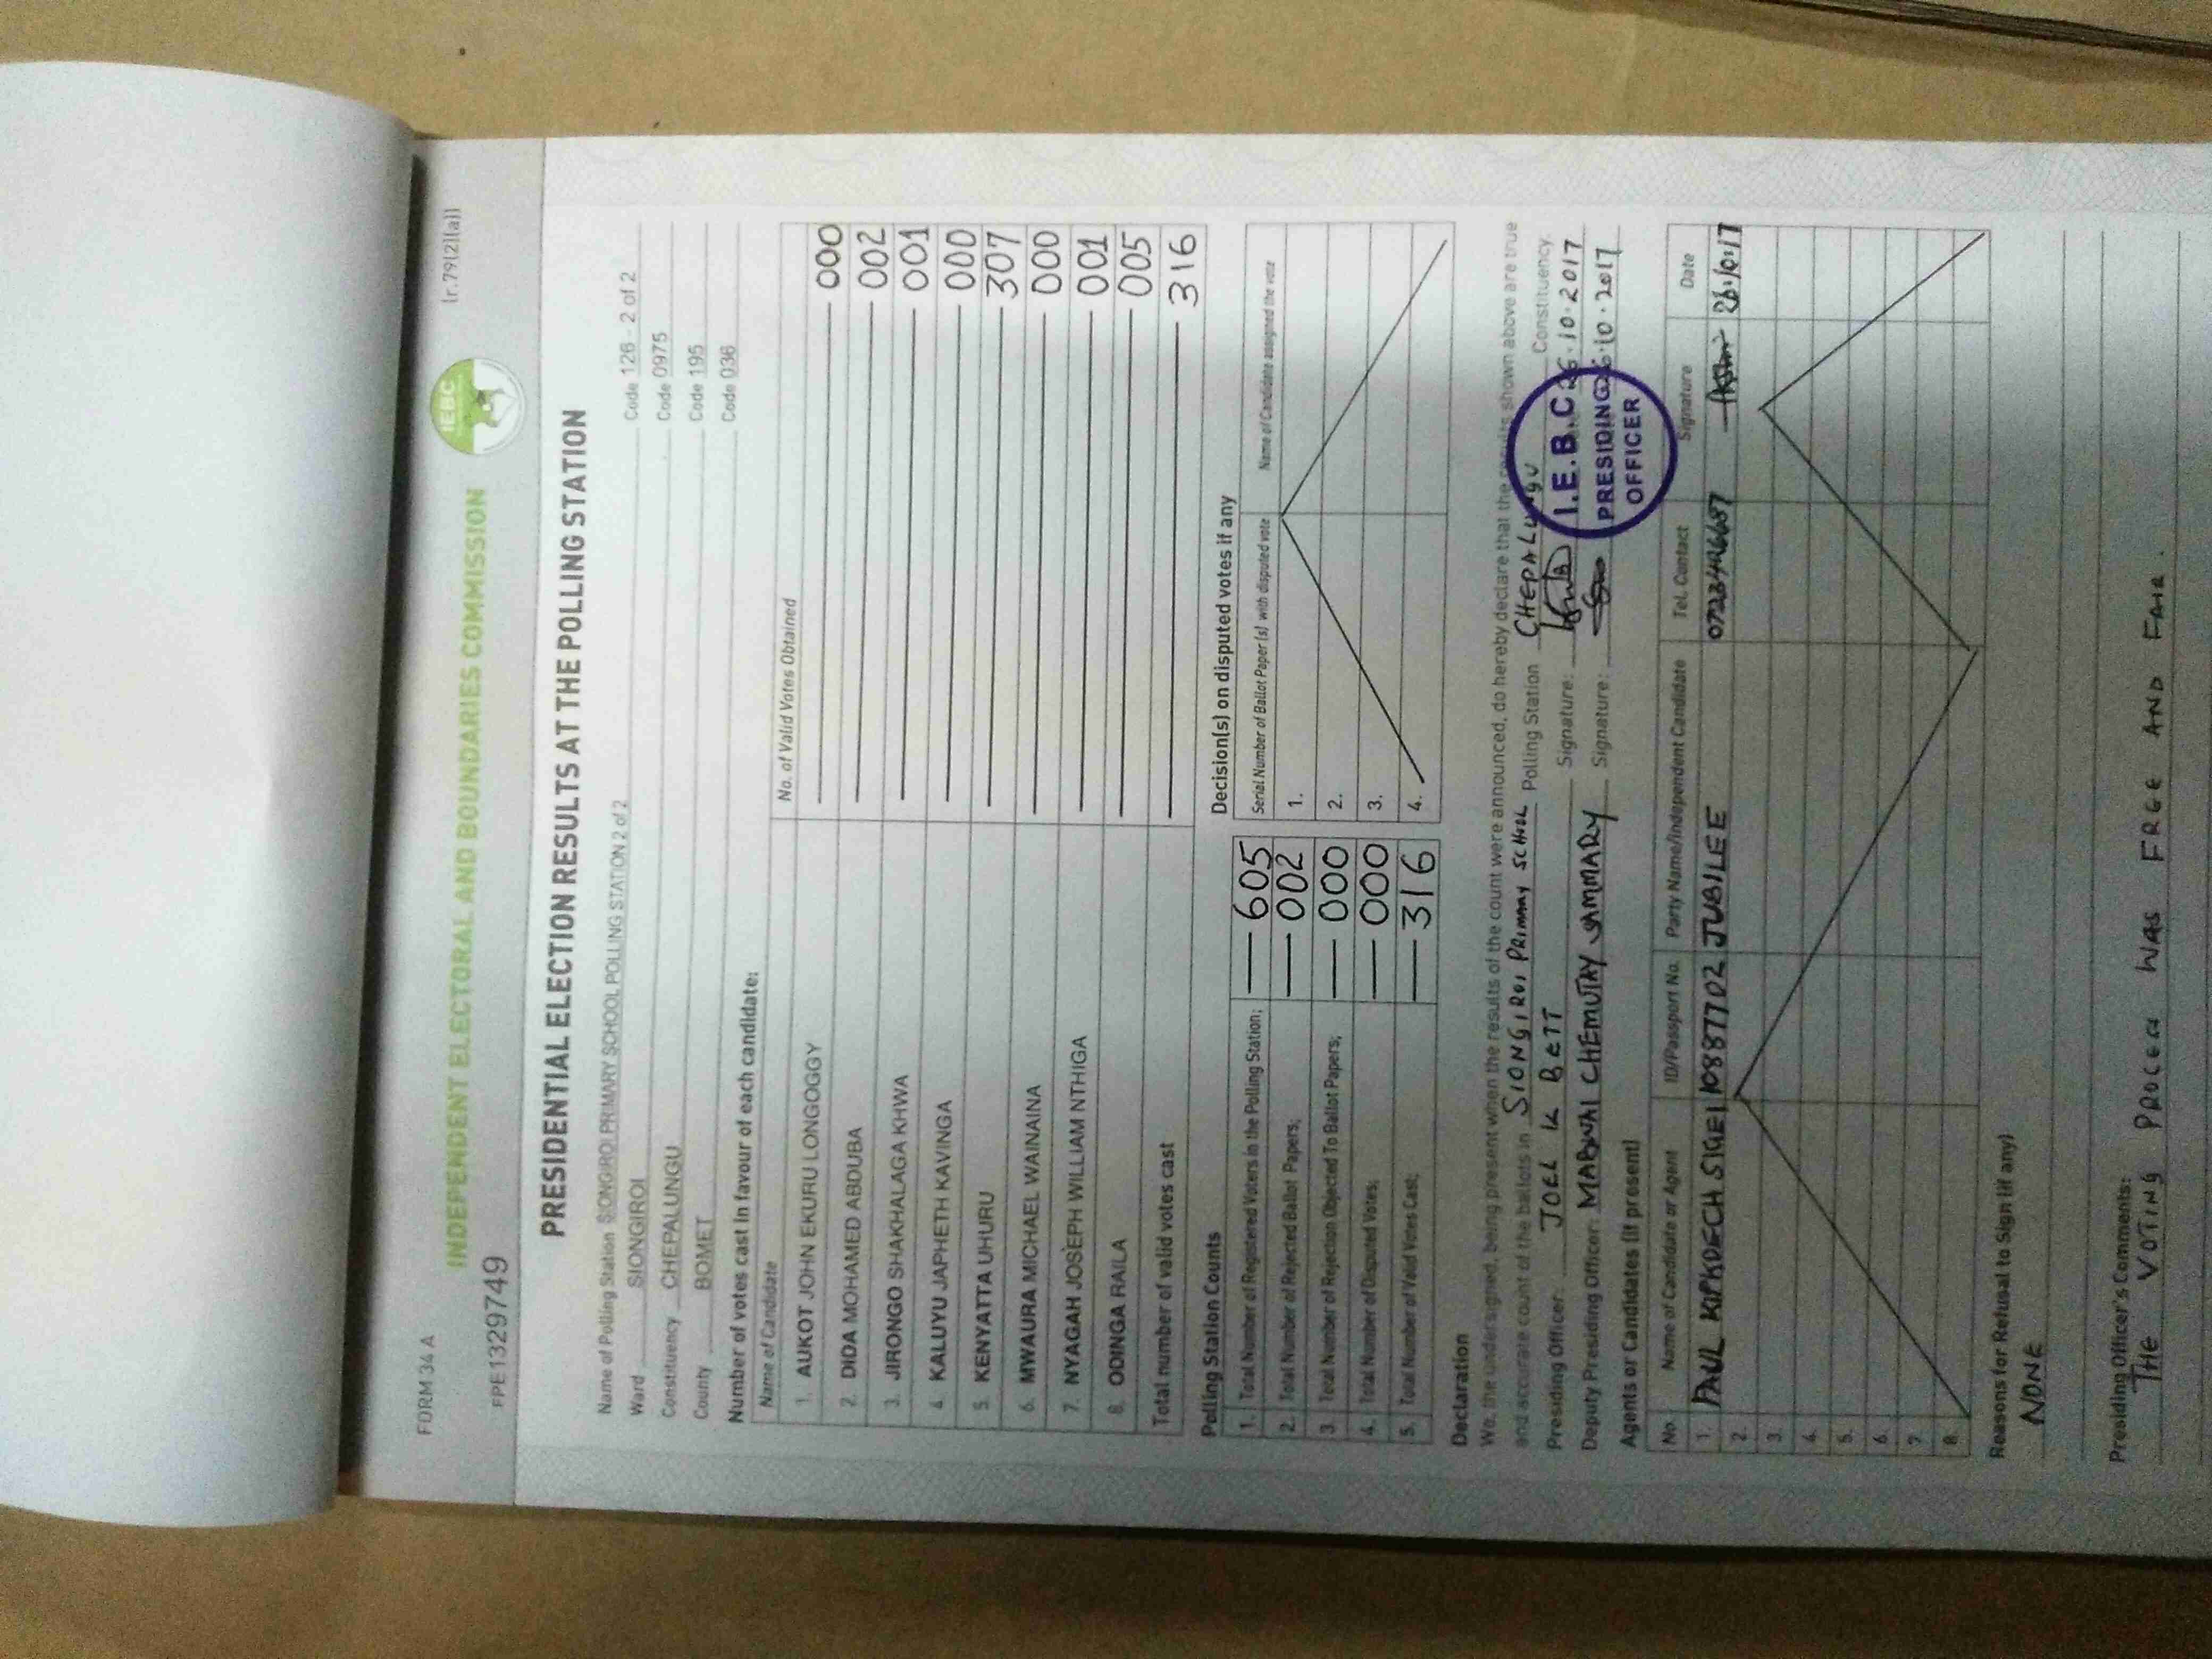 FORM 34 A
(r.79(2)(a))
IEBC
INDEPENDENT ELECTORAL AND BOUNDARIES COMMISSION
FPE1329749
PRESIDENTIAL ELECTION RESULTS AT THE POLLING STATION
Name of Polling Station SIONGIROI PRIMARY SCHOOL POLLING STATION 2 of 2 Code 126 - 2 of 2
Ward SIONGIROI Code 0975
Constituency CHEPALUNGU Code 195
County BOMET Code 036
Number of votes cast in favour of each candidate:
Name of Candidate No. of Valid Votes Obtained
1. AUKOT JOHN EKURU LONGOGGY 000
2. DIDA MOHAMED ABDUBA 002
3. JIRONGO SHAKHALAGA KHWA 001
4. KALUYU JAPHETH KAVINGA 000
5. KENYATTA UHURU 307
6. MWAURA MICHAEL WAINAINA 000
7. NYAGAH JOSEPH WILLIAM NTHIGA 001
8. ODINGA RAILA 005
Total number of valid votes cast 316
Polling Station Counts
1. Total Number of Registered Voters in the Polling Station; 605
2. Total Number of Rejected Ballot Papers; 002
3 Total Number of Rejection Objected To Ballot Papers; 000
4. Total Number of Disputed Votes; 000
5. Total Number of Valid Votes Cast; 316
Decision(s) on disputed votes if any
Serial Number of Ballot Paper (s) with disputed vote Name of Candidate assigned the vote
1.
2.
3.
4.
Declaration
We, the undersigned, being present when the results of the count were announced, do hereby declare that the results shown above are true
and accurate count of the ballots in SIONGIROI PRIMARY SCHOOL Polling Station CHEPALUNGU Constituency.
Presiding Officer: JOEL K BETT Signature: 26.10.2017
Deputy Presiding Officer: MABWAI CHEMUTAY SAMMARY Signature: 26.10.2017
I.E.B.C.
PRESIDING
OFFICER
Agents or Candidates (if present)
No. Name of Candidate or Agent ID/Passport No. Party Name/Independent Candidate Tel. Contact Signature Date
1. PAUL KIPKOECH SIGEI 10887702 JUBILEE
2.
3.
4.
5.
6.
7.
8.
Reasons for Refusal to Sign (if any)
NONE
Presiding Officer's Comments:
THE VOTING PROCESS WAS FREE AND FAIR.